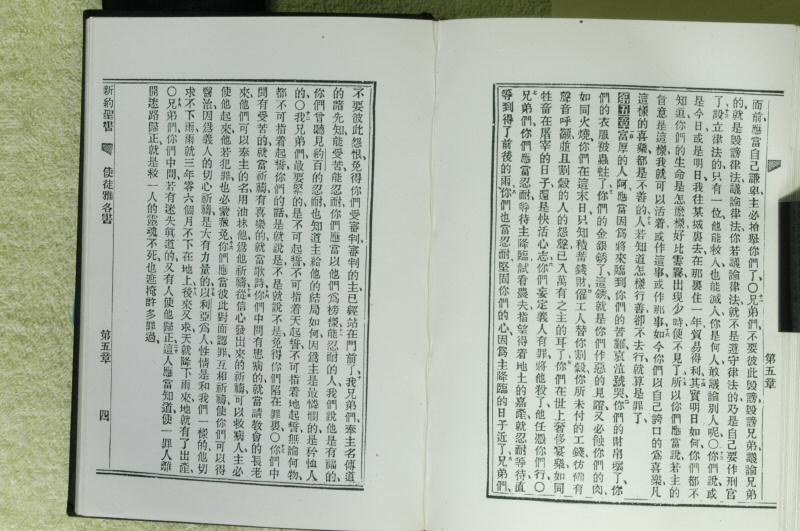 第五章
而前應當自己謙卑主必抬舉你們了○兄弟們不要彼此毀謗毀謗兄弟議論兄弟
的就是毀謗律法議論律法你若議論律法就不是遵守律法的乃是自己要作刑官
了設立律法的只有一位他能救人也能滅人你是何人敢議論別人呢○你們說或
是今日或是明日我往某城裏去在那裏住一年貿易得利其實明日如何你們都不
知道你們的生命是怎麽樣好比雲霧出現少時便不見了所以你們應當說若主的
旨意是這樣我就可以活着或作這事或作那事如今你們以自己誇口的爲喜樂凡
這樣的喜樂都是不善的人若知道怎樣行善卻不去行就算是罪了
第五章富厚的人阿應當因爲將來臨到你們的苦難哀泣號哭你們的財帛壞了你
們的衣服被蟲蛀了你們的金銀銹了這銹就是你們作惡的見證又必蝕你們的肉
如同火燒你們在這末日只知積蓄錢財催工人替你割穀你所未付的工錢彷彿有
聲音呼籲並且割穀的人的怨聲已入萬有之主的耳了你們在世上奢侈宴樂如同
牲畜在屠宰的日子還是快活心志你們妄定義人有罪將他殺了他任憑你們行○
兄弟們你們應當忍耐等待主降臨試看農夫指望得着地土的嘉產就忍耐等待直
等到得了前後的雨你們也當忍耐堅固你們的心因爲主降臨的日子近了兄弟們
不要彼此怨恨免得你們受審判審判的主已經站在門前了我兄弟們奉主名傳道
的諸先知能受苦能忍耐你們應當以他們爲榜樣能忍耐的人我們說他是有福的
你們曾聽見約百的忍耐也知道主給他的結局如何因爲主是最憐憫的是矜恤人
的○我兄弟們最要緊的是不可起誓不可指着天起誓不可指着地起誓無論何物
都不可指着起誓你們的話是就說是不是就說不是免得你們陷在罪裏○你們中
間有受苦的就當祈禱有喜樂的就當歌詩你們中間有患病的就當請教會的長老
來他們可以奉主的名用油抹他爲他祈禱從信心發出來的祈禱可以救病人主必
使他起來他若犯罪也必蒙赦免你們應當彼此對面認罪互相祈禱使你們可以得
醫治因爲義人的切心祈禱是大有力量的以利亞爲人性情是和我們一樣的他切
求不下雨雨就三年零六個月不下在地上後來又求天就降下雨來地就有了出產
○兄弟們你們中間若有迷失真道的又有人使他歸正這人應當知道使一罪人離
開迷路歸正就是救一人的靈魂不死也遮掩許多罪過
新約聖書 使徒雅各書 第五章 四